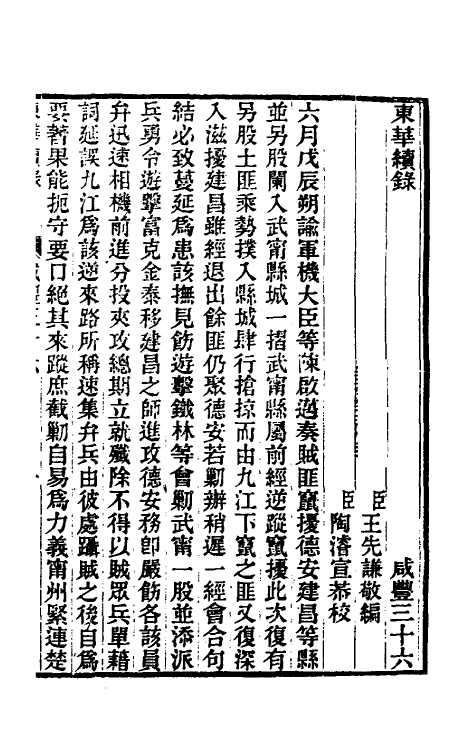 東華續錄　咸豐三十六
臣王先謙敬編
臣陶濬宣恭校
六月戊辰朔諭軍機大臣等陳啟邁奏賊匪竄擾德安建昌等縣
並另股闌入武甯縣城一摺武甯縣屬前經逆蹤竄擾此次復有
另股土匪乘勢撲入縣城肆行搶掠而由九江下竄之匪又復深
入滋擾建昌雖經退出餘匪仍聚德安若勦辦稍遲一經會合句
結必致蔓延爲患該撫見飭遊擊鐵林等會勦武甯一股並添派
兵勇令遊擊富克金泰移建昌之師進攻德安務卽嚴飭各該員
弁迅速相機前進分投夾攻總期立就殲除不得以賊眾兵單藉
詞延誤九江爲該逆來路所稱速集弁兵由彼處躡賊之後自爲
要著果能扼守要口絕其來蹤庶截勦自易爲力義甯州緊連楚
東華續錄　咸豐三十六